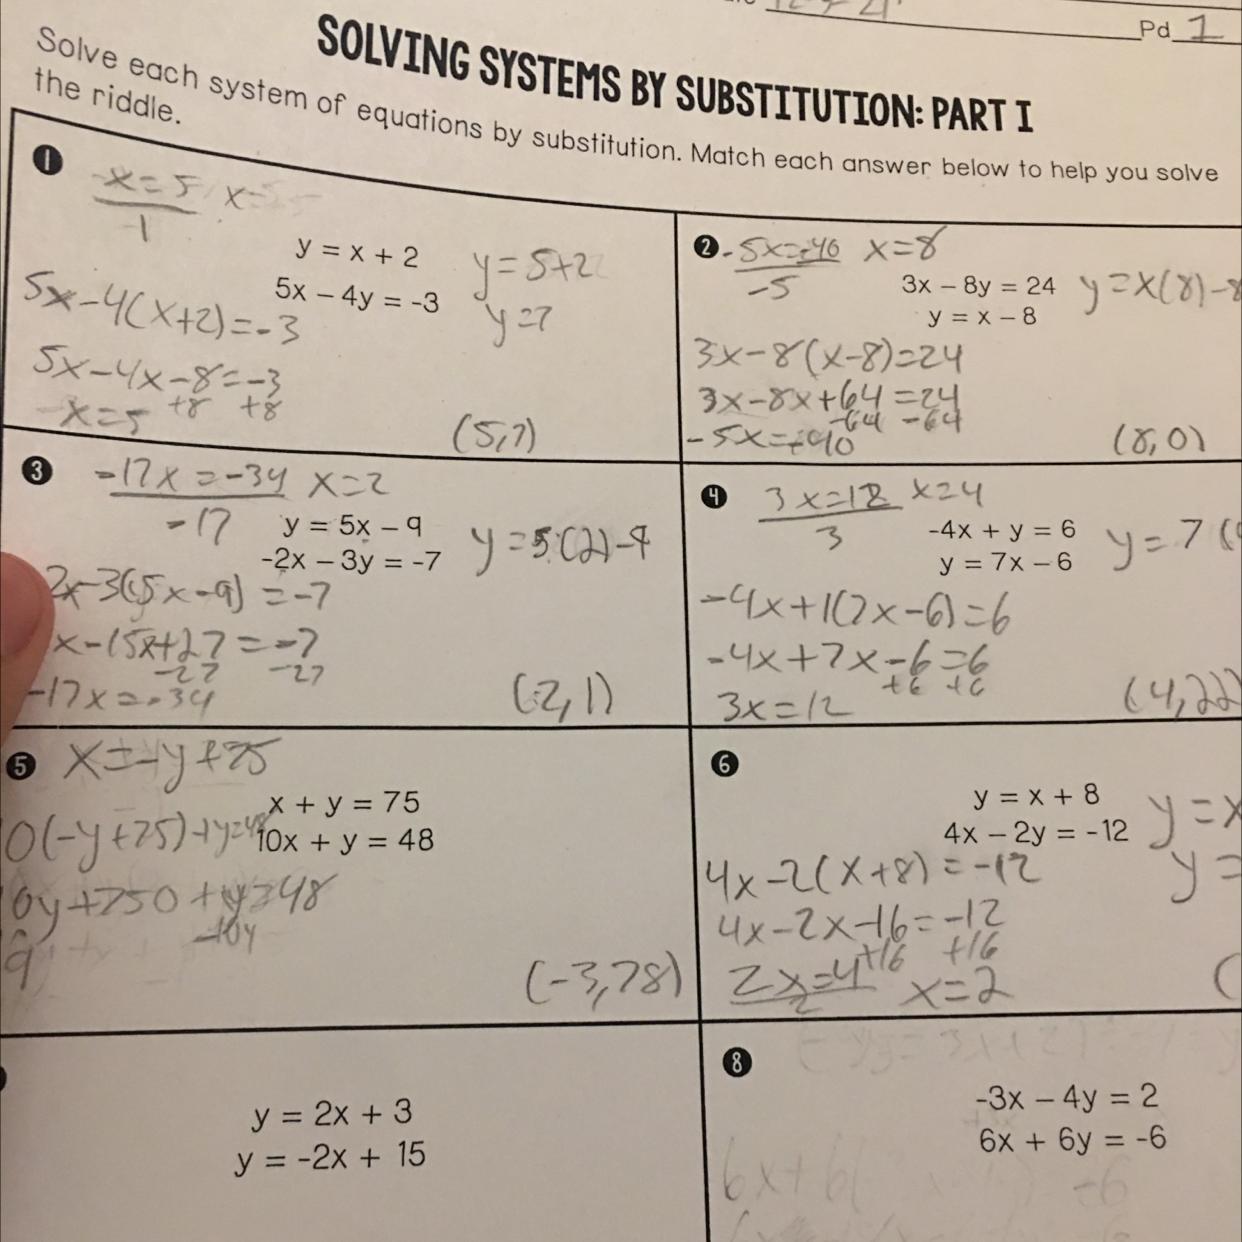 Pd 1
SOLVING SYSTEMS BY SUBSTITUTION: PART I
Solve each system of equations by substitution. Match each answer below to help you solve
the riddle.
1
-x = 5 x=5
-1
y = x + 2
5x – 4y = -3
y = 5+2
y=7
5x-4(x+2)=-3
5x-4x-8=-3
+8 +8
-x=5
(5,7)
2
-5x=-40 x=8
-5
3x – 8y = 24
y = x – 8
y=x(8)-8
3x-8(x-8)=24
3x-8x+64=24
-64 -64
-5x=-40
(8,0)
3
-17x=-34 x=2
-17
y = 5x – 9
-2x – 3y = -7
y=5(2)-9
2x-3(5x-9)=-7
x-15x+27=-7
-27 -27
-17x=-34
(2,1)
4
3x=12 x=4
3
-4x + y = 6
y = 7x – 6
y=7(
-4x+1(7x-6)=6
-4x+7x-6=6
+6 +6
3x=12
(4,22)
5
x=-y+75
x + y = 75
10x + y = 48
0(-y+75)+y=48
0y+750+y=48
-10y
9
(-3,78)
6
y = x + 8
4x – 2y = -12
y=x
y=
4x-2(x+8)=-12
4x-2x-16=-12
+16 +16
2x=4 x=2
2
(
y = 2x + 3
y = -2x + 15
8
-3x – 4y = 2
6x + 6y = -6
6x+6(
-6